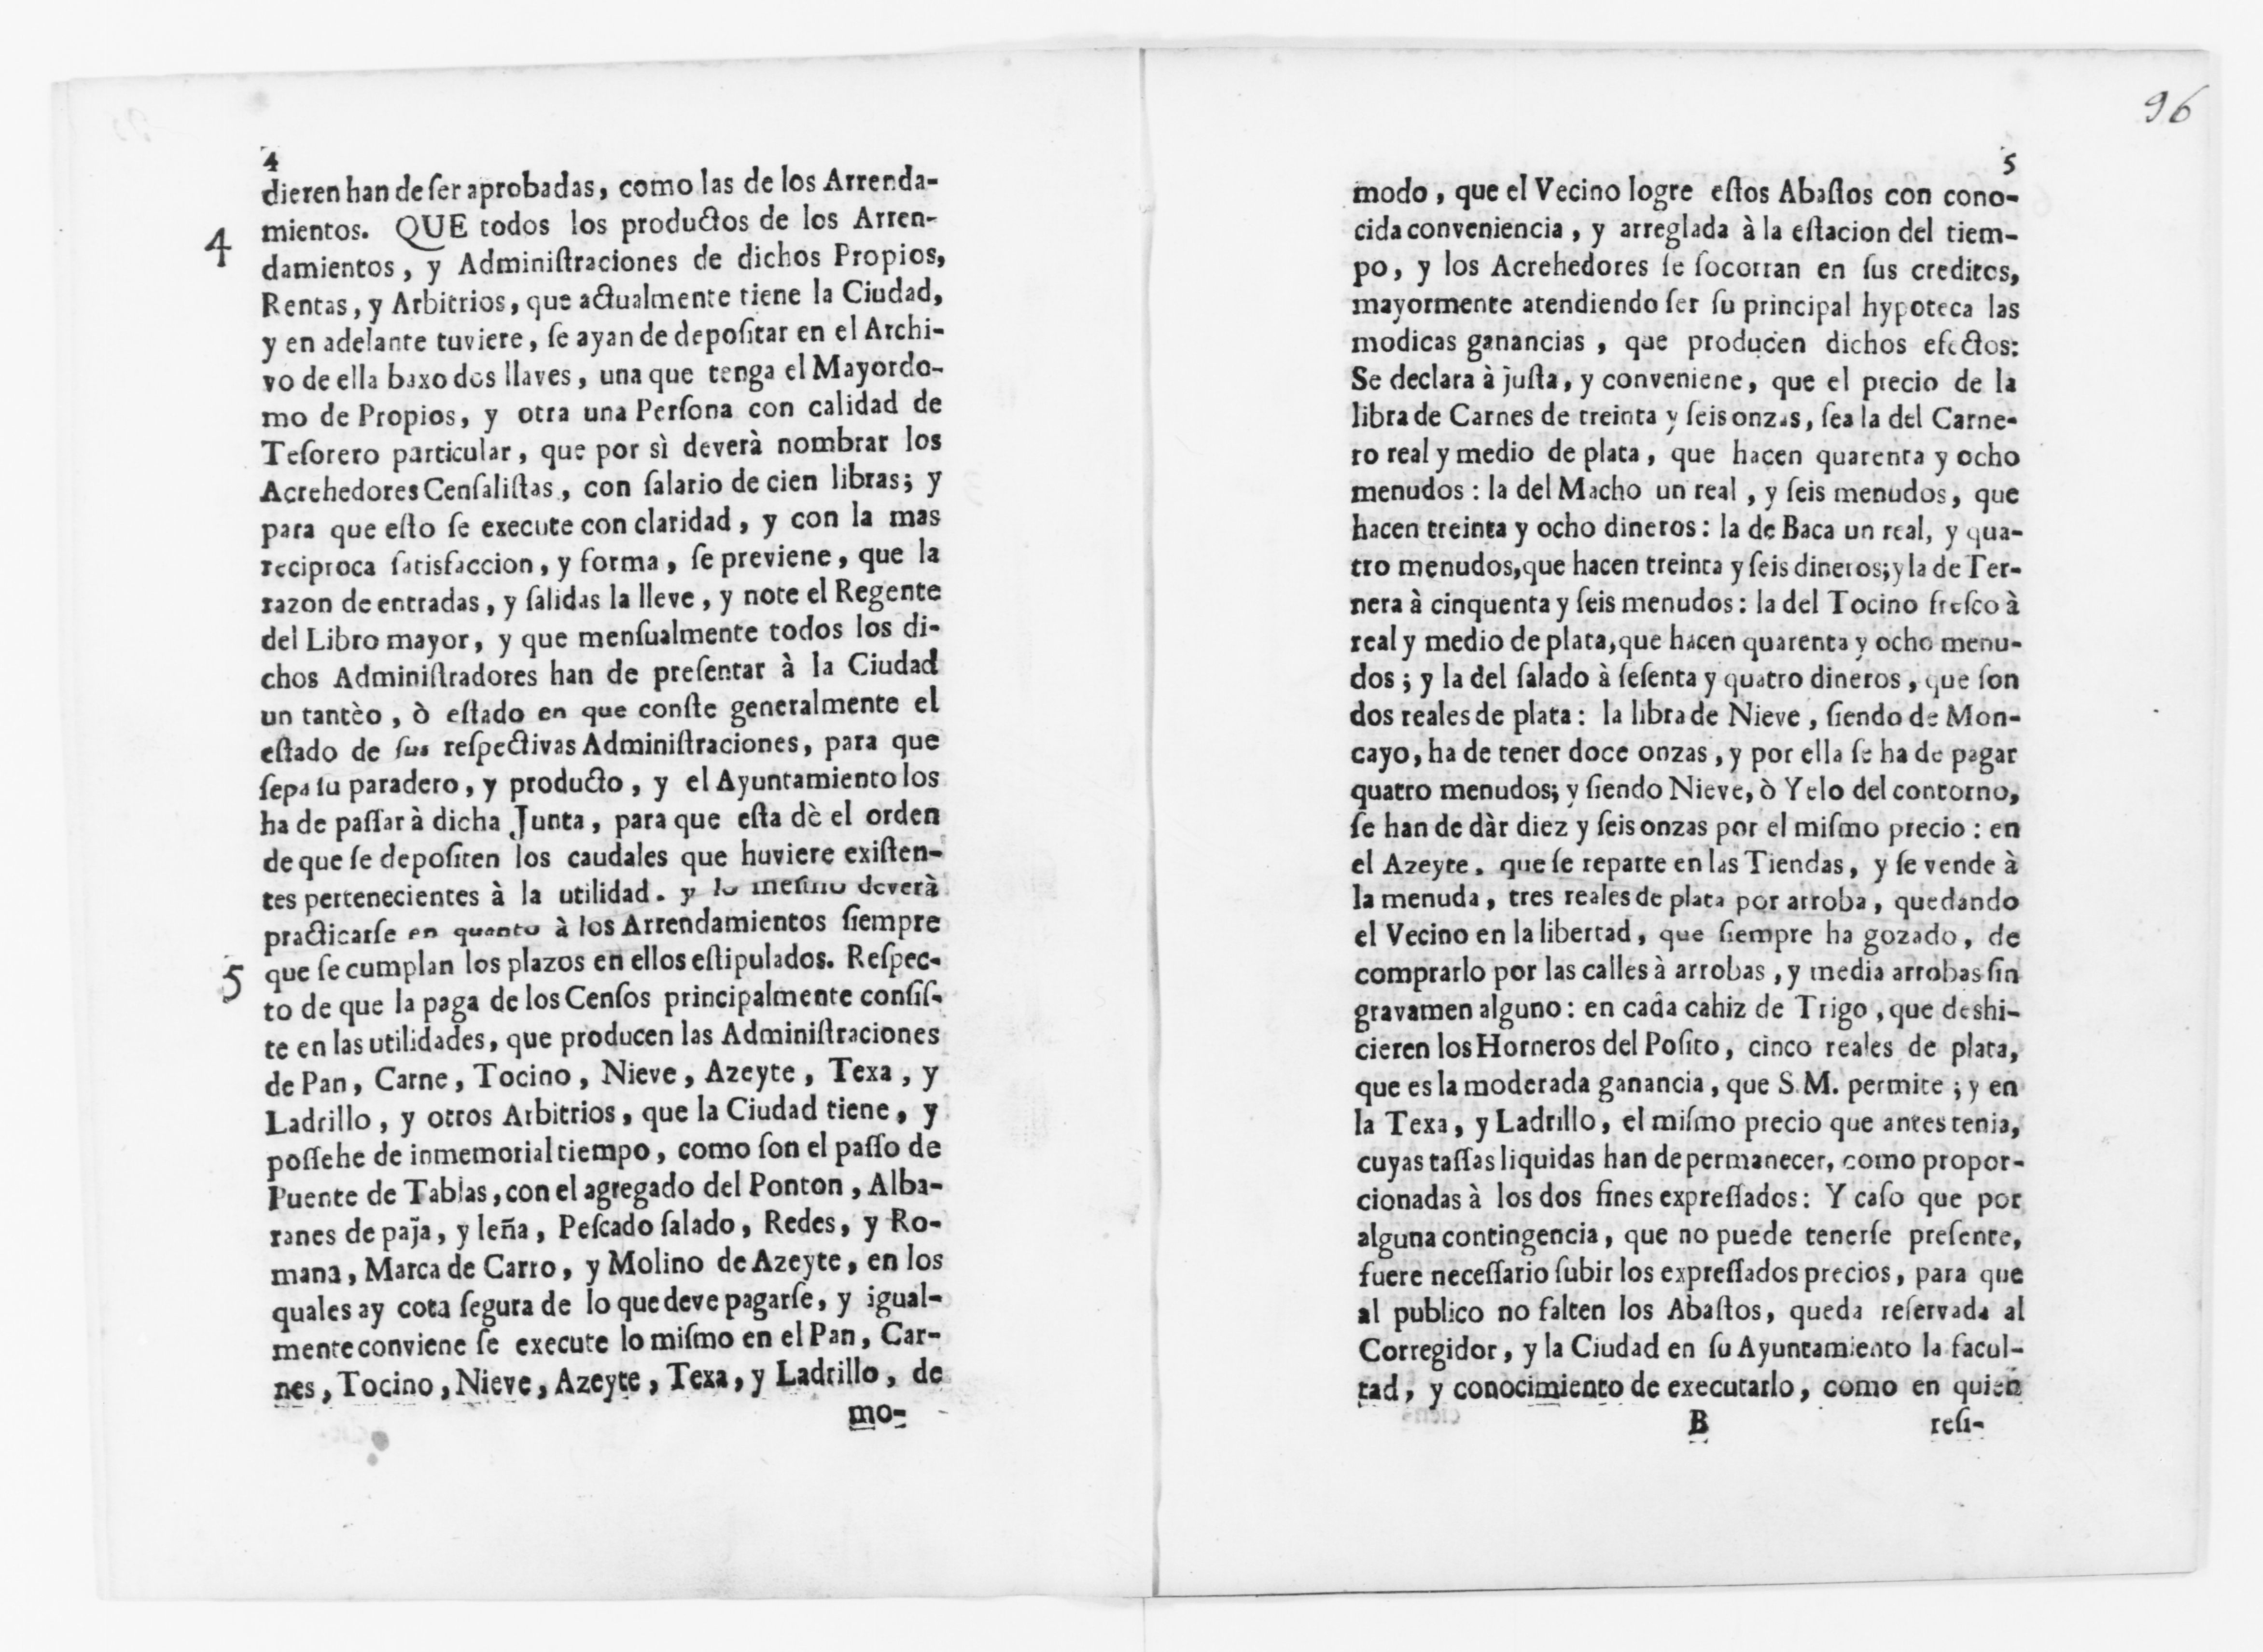 4
dieren han de ſer aprobadas, como las de los Arrenda-
4 mientos. QUE todos los productos de los Arren-
damientos, y Adminiſtraciones de dichos Propios,
Rentas, y Arbitrios, que actualmente tiene la Ciudad,
y en adelante tuviere, ſe ayan de depoſitar en el Archi-
vo de ella baxo dos llaves, una que tenga el Mayordo-
mo de Propios, y otra una Perſona con calidad de
Teſorero particular, que por sì deverà nombrar los
Acrehedores Cenſaliſtas, con ſalario de cien libras; y
para que eſto ſe execute con claridad, y con la mas
reciproca ſatisfaccion, y forma, ſe previene, que la
razon de entradas, y ſalidas la lleve, y note el Regente
del Libro mayor, y que menſualmente todos los di-
chos Adminiſtradores han de preſentar à la Ciudad
un tantèo, ò eſtado en que conſte generalmente el
eſtado de ſus reſpectivas Adminiſtraciones, para que
ſepa ſu paradero, y producto, y el Ayuntamiento los
ha de paſſar à dicha Junta, para que eſta dè el orden
de que ſe depoſiten los caudales que huviere exiſten-
tes pertenecientes à la utilidad. y lo meſmo deverà
practicarſe en quanto à los Arrendamientos ſiempre
5 que ſe cumplan los plazos en ellos eſtipulados. Reſpec-
to de que la paga de los Cenſos principalmente conſiſ-
te en las utilidades, que producen las Adminiſtraciones
de Pan, Carne, Tocino, Nieve, Azeyte, Texa, y
Ladrillo, y otros Arbitrios, que la Ciudad tiene, y
poſſehe de inmemorial tiempo, como ſon el paſſo de
Puente de Tablas, con el agregado del Ponton, Alba-
ranes de paja, y leña, Peſcado ſalado, Redes, y Ro-
mana, Marca de Carro, y Molino de Azeyte, en los
quales ay cota ſegura de lo que deve pagarſe, y igual-
mente conviene ſe execute lo miſmo en el Pan, Car-
nes, Tocino, Nieve, Azeyte, Texa, y Ladrillo, de
mo-
96
5
modo, que el Vecino logre eſtos Abaſtos con cono-
cida conveniencia, y arreglada à la eſtacion del tiem-
po, y los Acrehedores ſe ſocorran en ſus creditos,
mayormente atendiendo ſer ſu principal hypoteca las
modicas ganancias, que producen dichos efectos:
Se declara à juſta, y conveniene, que el precio de la
libra de Carnes de treinta y ſeis onzas, ſea la del Carne-
ro real y medio de plata, que hacen quarenta y ocho
menudos: la del Macho un real, y ſeis menudos, que
hacen treinta y ocho dineros: la de Baca un real, y qua-
tro menudos, que hacen treinta y ſeis dineros; y la de Ter-
nera à cinquenta y ſeis menudos: la del Tocino freſco à
real y medio de plata, que hacen quarenta y ocho menu-
dos; y la del ſalado à ſeſenta y quatro dineros, que ſon
dos reales de plata: la libra de Nieve, ſiendo de Mon-
cayo, ha de tener doce onzas, y por ella ſe ha de pagar
quatro menudos; y ſiendo Nieve, ò Yelo del contorno,
ſe han de dàr diez y ſeis onzas por el miſmo precio: en
el Azeyte, que ſe reparte en las Tiendas, y ſe vende à
la menuda, tres reales de plata por arroba, quedando
el Vecino en la libertad, que ſiempre ha gozado, de
comprarlo por las calles à arrobas, y media arrobas ſin
gravamen alguno: en cada cahiz de Trigo, que deshi-
cieren los Horneros del Poſito, cinco reales de plata,
que es la moderada ganancia, que S.M. permite; y en
la Texa, y Ladrillo, el miſmo precio que antes tenia,
cuyas taſſas liquidas han de permanecer, como propor-
cionadas à los dos fines expreſſados: Y caſo que por
alguna contingencia, que no puede tenerſe preſente,
fuere neceſſario ſubir los expreſſados precios, para que
al publico no falten los Abaſtos, queda reſervada al
Corregidor, y la Ciudad en ſu Ayuntamiento la facul-
tad, y conocimiento de executarlo, como en quien
B reſi-